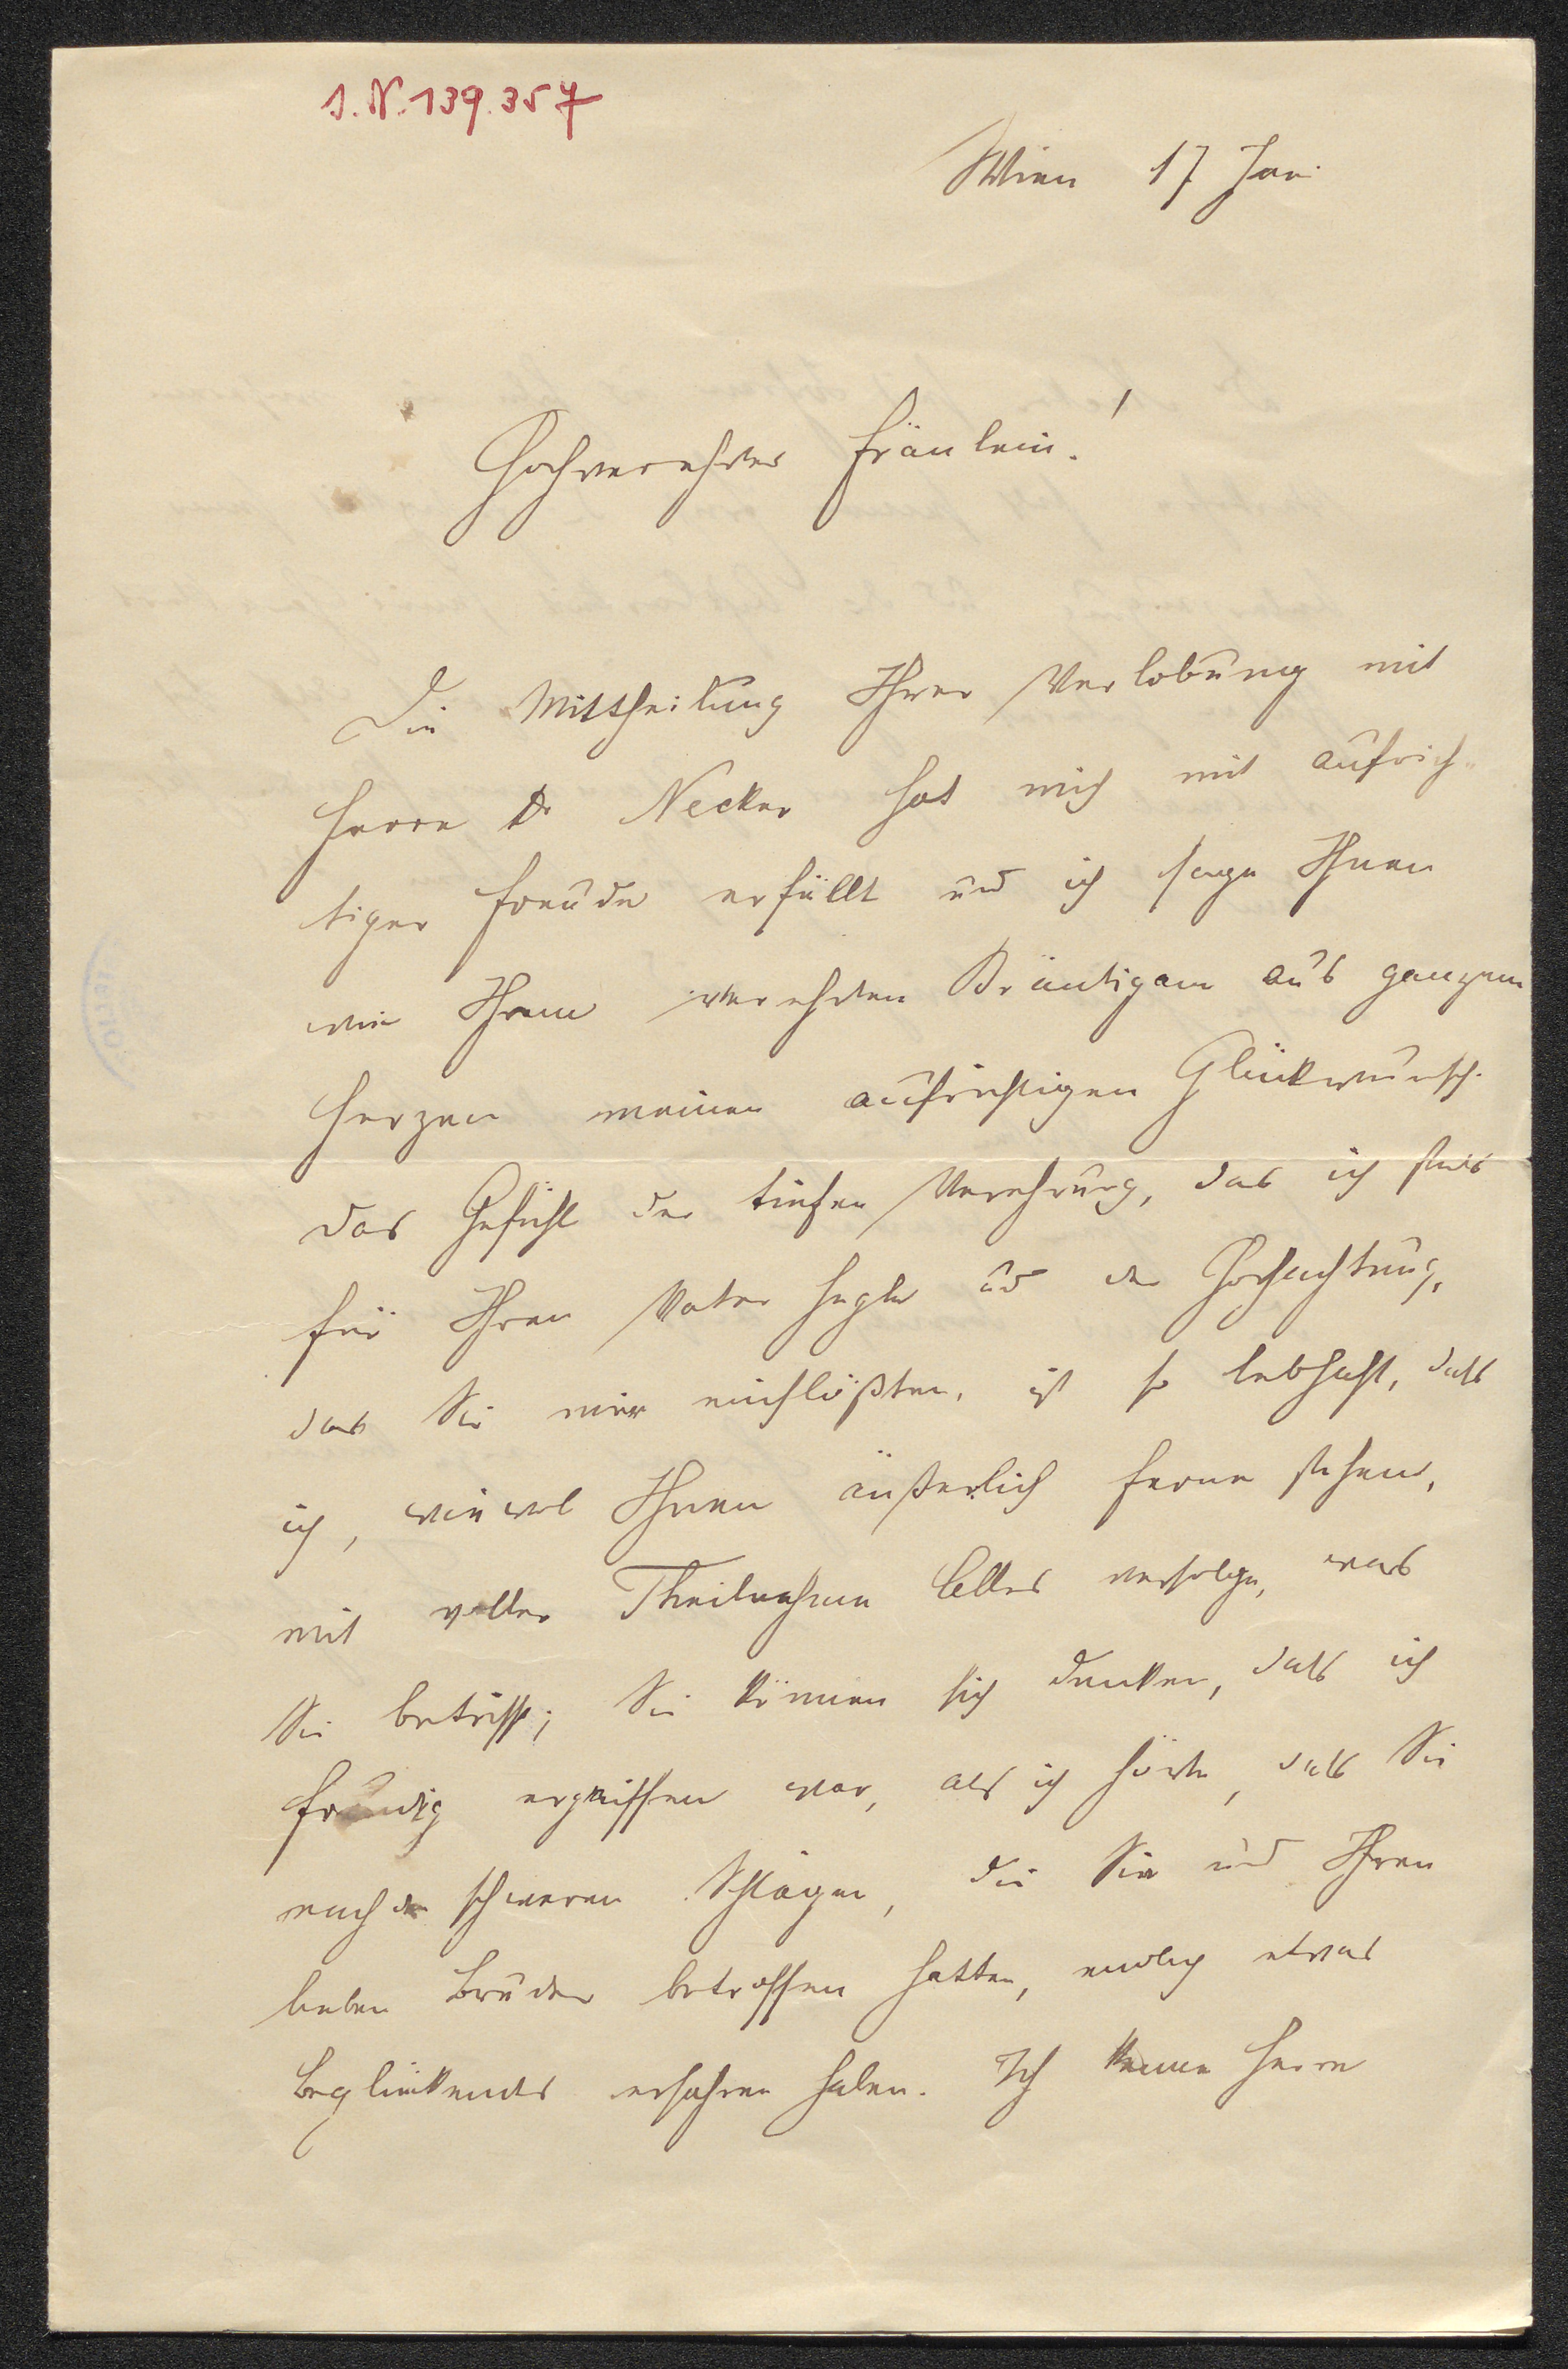 I.N. 139.357
Wien 17 Jan.
Hochverehrtes Fräulein!
Die Mittheilung Ihrer Verlobung mit
Herrn Dr Necker hat mich mit aufrich-
tiger Freude erfüllt und ich sage Ihnen
wie Ihrem verehrten Bräutigam aus ganzem
Herzen meinen aufrichtigen Glückwunsch.
Das Gefühl der tiefen Verehrung, das ich stets
für Ihren Vater hegte und der Hochachtung,
das Sie mir einflößten, ist so lebhaft, daß
ich, wiewol Ihnen äußerlich ferne stehend,
mit voller Theilnahme Alles verfolge, was
Sie betrifft; Sie können sich denken, daß ich
freudig ergriffen war, als ich hörte, daß Sie
nach den schweren Schlägen, die Sie und Ihren
lieben Bruder betroffen hatten, endlich etwas
Beglückendes erfahren haben. Ich kenne Herrn